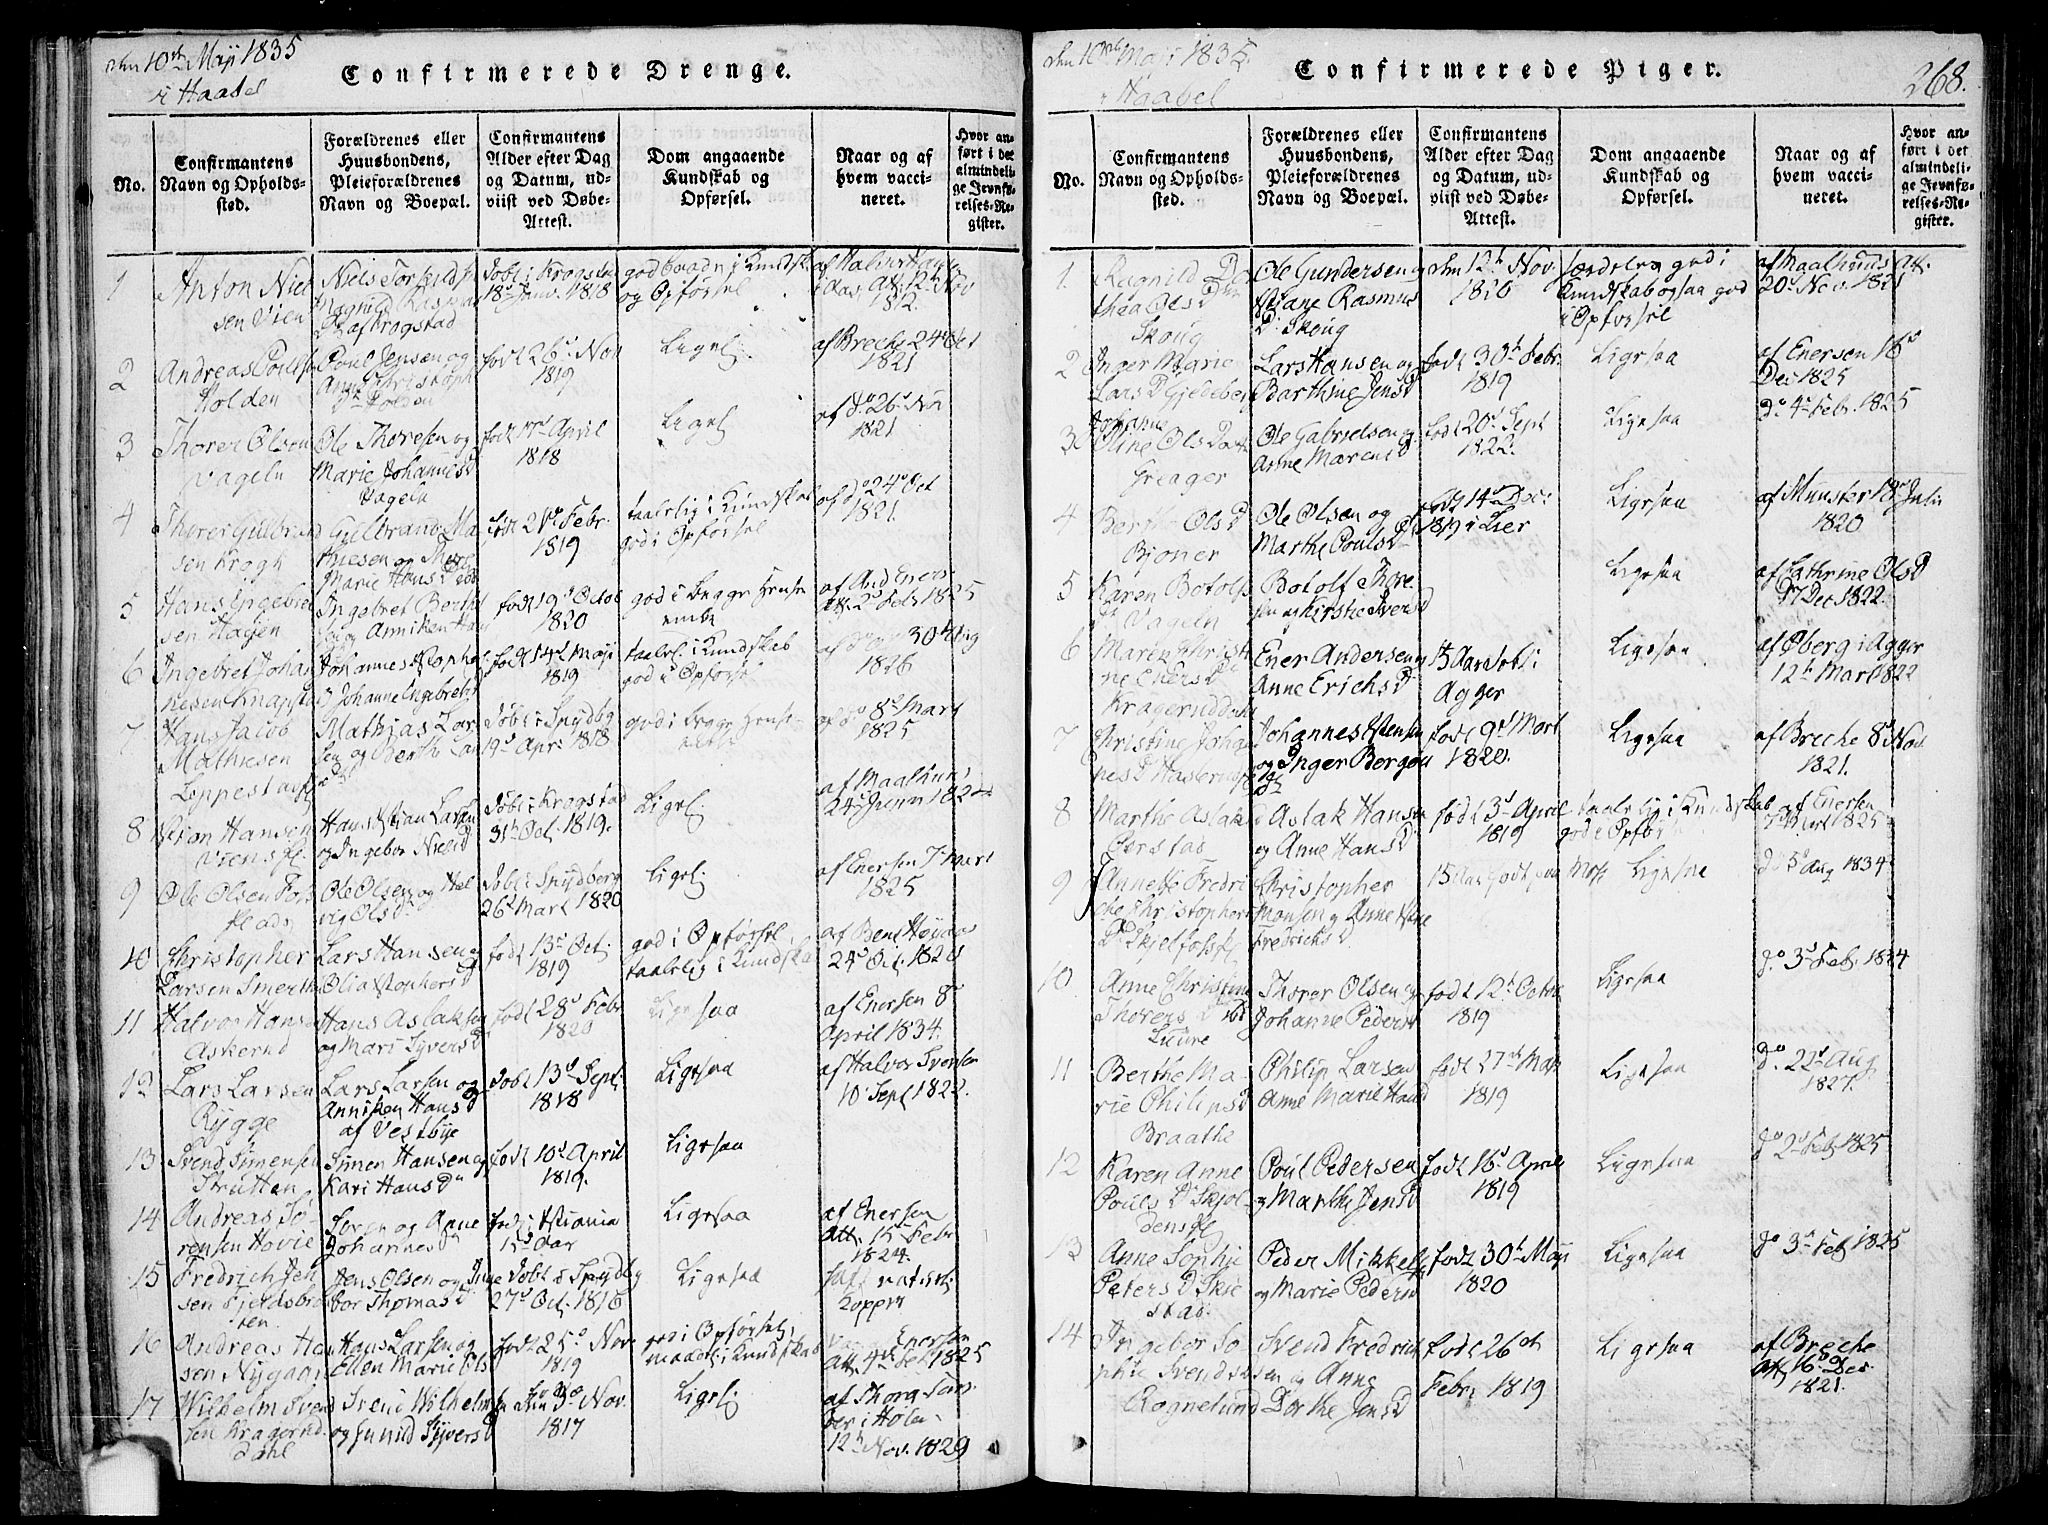 den 10de Maji 1835
i Haabøl
Confirmerede Drenge.
No.
Confirmantens
Navn og Opholds-
sted.
Forældrenes eller
Huusbondens,
Pleieforældrenes
Navn og Boepæl.
Confirmantens
Alder efter Dag
og Datum, ud-
viist ved Døbe-
Attest.
Dom angaaende
Kundskab og
Opførsel.
Naar og af
hvem vacci-
neret.
Hvor an-
ført i det
almindeli-
ge Jevnfø-
relses-Re-
gister.
1
Anton Niel
sen Vien
Niels Torkilds
Magnild Rasmus
D af Krogstad
døbt i Krogstad
18d Janv. 1818
god baade i Kundsk.
og Opførsel
af Halvor
Att. 12te Nov
2
Andreas Poulsen
Holden
Poul Jensen og
Anne Christoph
D Holden
født 26d Nov
1819
Ligel.
af Breche 24de Oct
1821
3
Thorer Olsen
Vageln
Ole Thoresen og
Marie Johannesd
Vageln
født April
1818
Ligel.
af do 26d Nov
1821
4
Thorer Gulbrand
sen Krogh
Gulbrand Ma
thiesen og
Marie Hans D
født 21de Febr.
1819
taalelig i Kundskab
god i Opførsel
af do 24d Oct
1821.
5
Hans Ingebret
sen Hagen
Ingebret Berth
og Anniken
født 19d Octob
1820
god i begge Hense
ender
af And Eners
Att. 2d Feb 1825
6
Ingebret Johan
nesen Knapstad
Johannes
Johanne Ingebreth
født 14d Maji
1819
taalel. i Kundskab
god i Opførsl
af do 30te Aug
1826
7
Hans Jacob
Mathiesen
Leppestad
Mathias Lar
sen og Berthe Lar
døbt i Spydbg
19d Apr. 1818
god i begge Hense
ender
af do 8d Mart
1825
8
Hansen
Viens
Hans Larsen
og Ingebor Nielsd
døbt i Krogstad
31te Oct. 1819.
Ligel.
af Maalhuus
24d Juni 182
9
Ole Olsen
Ole Olsen og Hel
vig Olsd
døbt i Spydberg
26d Mart 1820
Ligel.
af Enersen 7 Mart
1825
10
Christopher
Larsen Smerth
Lars Hansen og
Olia Stophersd
født 13d Oct.
1819
god i Opførsel,
taalelig i Kundskab
af Bent
24d Oct. 1820
11
Halvor Hansen
Askerud
Hans Aslaksen
og Mari Syversd
født 28d Febr
1820
Ligesaa
af Enersen 8d
April 1834.
12
Lars Larsen
Rygge
Lars Larsen og
Anniken Hansd
af Vestbye
døbt 13d Sept.
1818
Ligesaa
af Halvor Svensen
10 Sept 1822.
13
Svend Simensen
Strutten
Simen Hansen og
Kari Hansd
født 10d April
1819.
Ligesaa
14
Andreas Sø-
rensen Hovie
Soren og Anne
Johannesd
født i Xstiania
15d Aar
Ligesaa
af Enersen
Att. 15 Febr
1824.
15
Fredrich Jen
sen Fjeldsbra
ten
Jens Olsen og Inge
bor Thomasd
døbt i Spydbg
27d Oct. 1816
Ligesaa
naturl.
Kopper
16
Andreas Han
sen Nygaar
Hans Larsen og
Ellen Marie Ols
født 25d Nov.
1819
god i Opførsel,
maadel. i Kundskab
Enersen
Att. 4de Feb 1825
17
Wilhelm Svend
sen Kragerud
dahl
Svend Wilhelm
og Gunild Syversd
3d Nov.
1817
Ligel.
af Thorg
ber i Holen
12te Nov. 1829
den 10de Maj 1835.
i Haabøl
Confirmerede Piger.
268.
No.
Confirmantens
Navn og Opholds-
sted.
Forældrenes eller
Huusbondens,
Pleieforældrenes
Navn og Boepæl.
Confirmantens
Alder efter Dag
og Datum, ud-
viist ved Døbe-
Attest.
Dom angaaende
Kundskab og
Opførsel.
Naar og af
hvem vacci-
neret.
Hvor an-
ført i det
almindeli-
ge Jevnfø-
relses-Re-
gister.
1.
Ragnild Do
thea Ols D
Skoug
Ole Gundersen og
Rasmus
D. Skoug
den 12te Nov.
1820
særdeles god i
Kundskab ogsaa god
i Opførsel
af Maalhuus Att.
20d Nov. 1821
2
Inger Marie
Lars D Gjedeberg
Lars Hansen og
Barthine Jensd
født 30te Febr.
1819
Ligesaa
af Enersen 16d
Dec 1825
3
Johanne
Oline Ols D
Greager
Ole Gabrielsen og
Anne Marensd
født 20d Sept
1822.
Ligesaa
do 4de Febr. 1825
4
Berthe Ols D
Bjoner
Ole Olsen og
Marthe Poulsd
født 14d Dec.
1819 i Lier
Ligesaa
af Munster 18d Julii
1820
5
Karen Botolfs
D Vageln
Botolf Thore
sen og Kirstie Svensd
Ligesaa
af Cathrine Olsd
17 Dec 1822.
6
Maren Christi
ne Eners D
Kragerud
Ener Andersen og
Anne Erichsd
15 Aar døbt i
Agger
Ligesaa
af Øberg i Agger
12te Mart 1822
7
Christine Johan
nes D
Johannes Estensen
og Inger Borgen
født 9d Mart
1820.
Ligesaa
af Breche 8d Nov
1821.
8
Marthe Aslak
Perstad
Aslak Hansen
og Anne Hansd
født 3d April
1819
taalelig i Kundskab
god i Opførs
af Enersen
7d Mart 1825
9
Annette Fredri
che Christophers
D. Skjelfoss
Christopher
Monsen og Anne
Fredrichsd
15 Aar født paa Moss
Ligesaa
do 5d Aug 1834
10
Anne Christine
Thorers D
Thorer Olsen og
Johanne Pedersd
født 12te Octob
1819
Ligesaa
do 3de Feb. 1824
11
Berthe Ma-
rie Philipsd
Braathe
Philip Larsen
Anne Marie Hansd
født 27de Maji
1819
Ligesaa
do 22d Aug
1827.
12
Karen Anne
Pouls D. Skjol-
densfl
Poul Pedersen
og Marthe Jensd
født 16d April
1819
Ligesaa
do 2d Feb 1825
13
Anne Sophie
Peters D Skie
stad
Peder Mikkels
og Marie Pedersd
født 30te Maji
1820
Ligesaa
do 3d Feb 1825
14
Ingebor So
phie Svends
Rognelund
Svend Fredrich
sen og Anne
Dorthe Jensd
født 26de
Febr. 1819
Ligesaa
af Breche
Att. 16d Dec
1821.